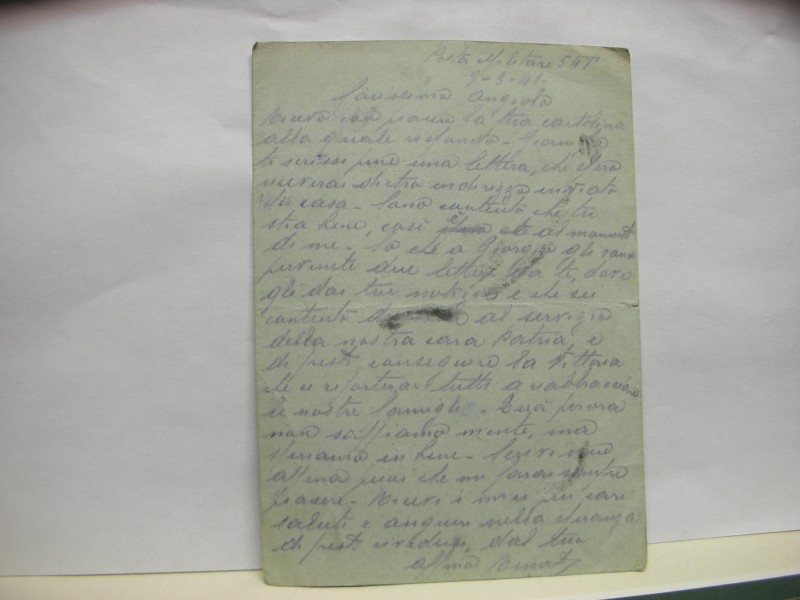 Posta Militare 541
9-3-41-
Carissimo Angiolo
Ricevo con piacere la tua cartolina
alla quale rispondo - Giorni
te scrissi pure una lettera, che spero
riceverai dietro indirizzo inviato
da casa - Sono contento che tu
stia bene, così al momento
di me - So che a Giorgio gli sono
pervenute due lettere
gli dai tue notizie e che sei
contento al servizio
della nostra cara Patria, e
di presto conseguire la Vittoria
che ci riporterà tutti a riabbracciare
le nostre famiglie - Però per ora
non sappiamo niente, ma
speriamo in bene - Scrivi
più che mi farai sempre
piacere - Ricevi i miei più cari
saluti e auguri nella speranza
di presto rivederci, dal tuo